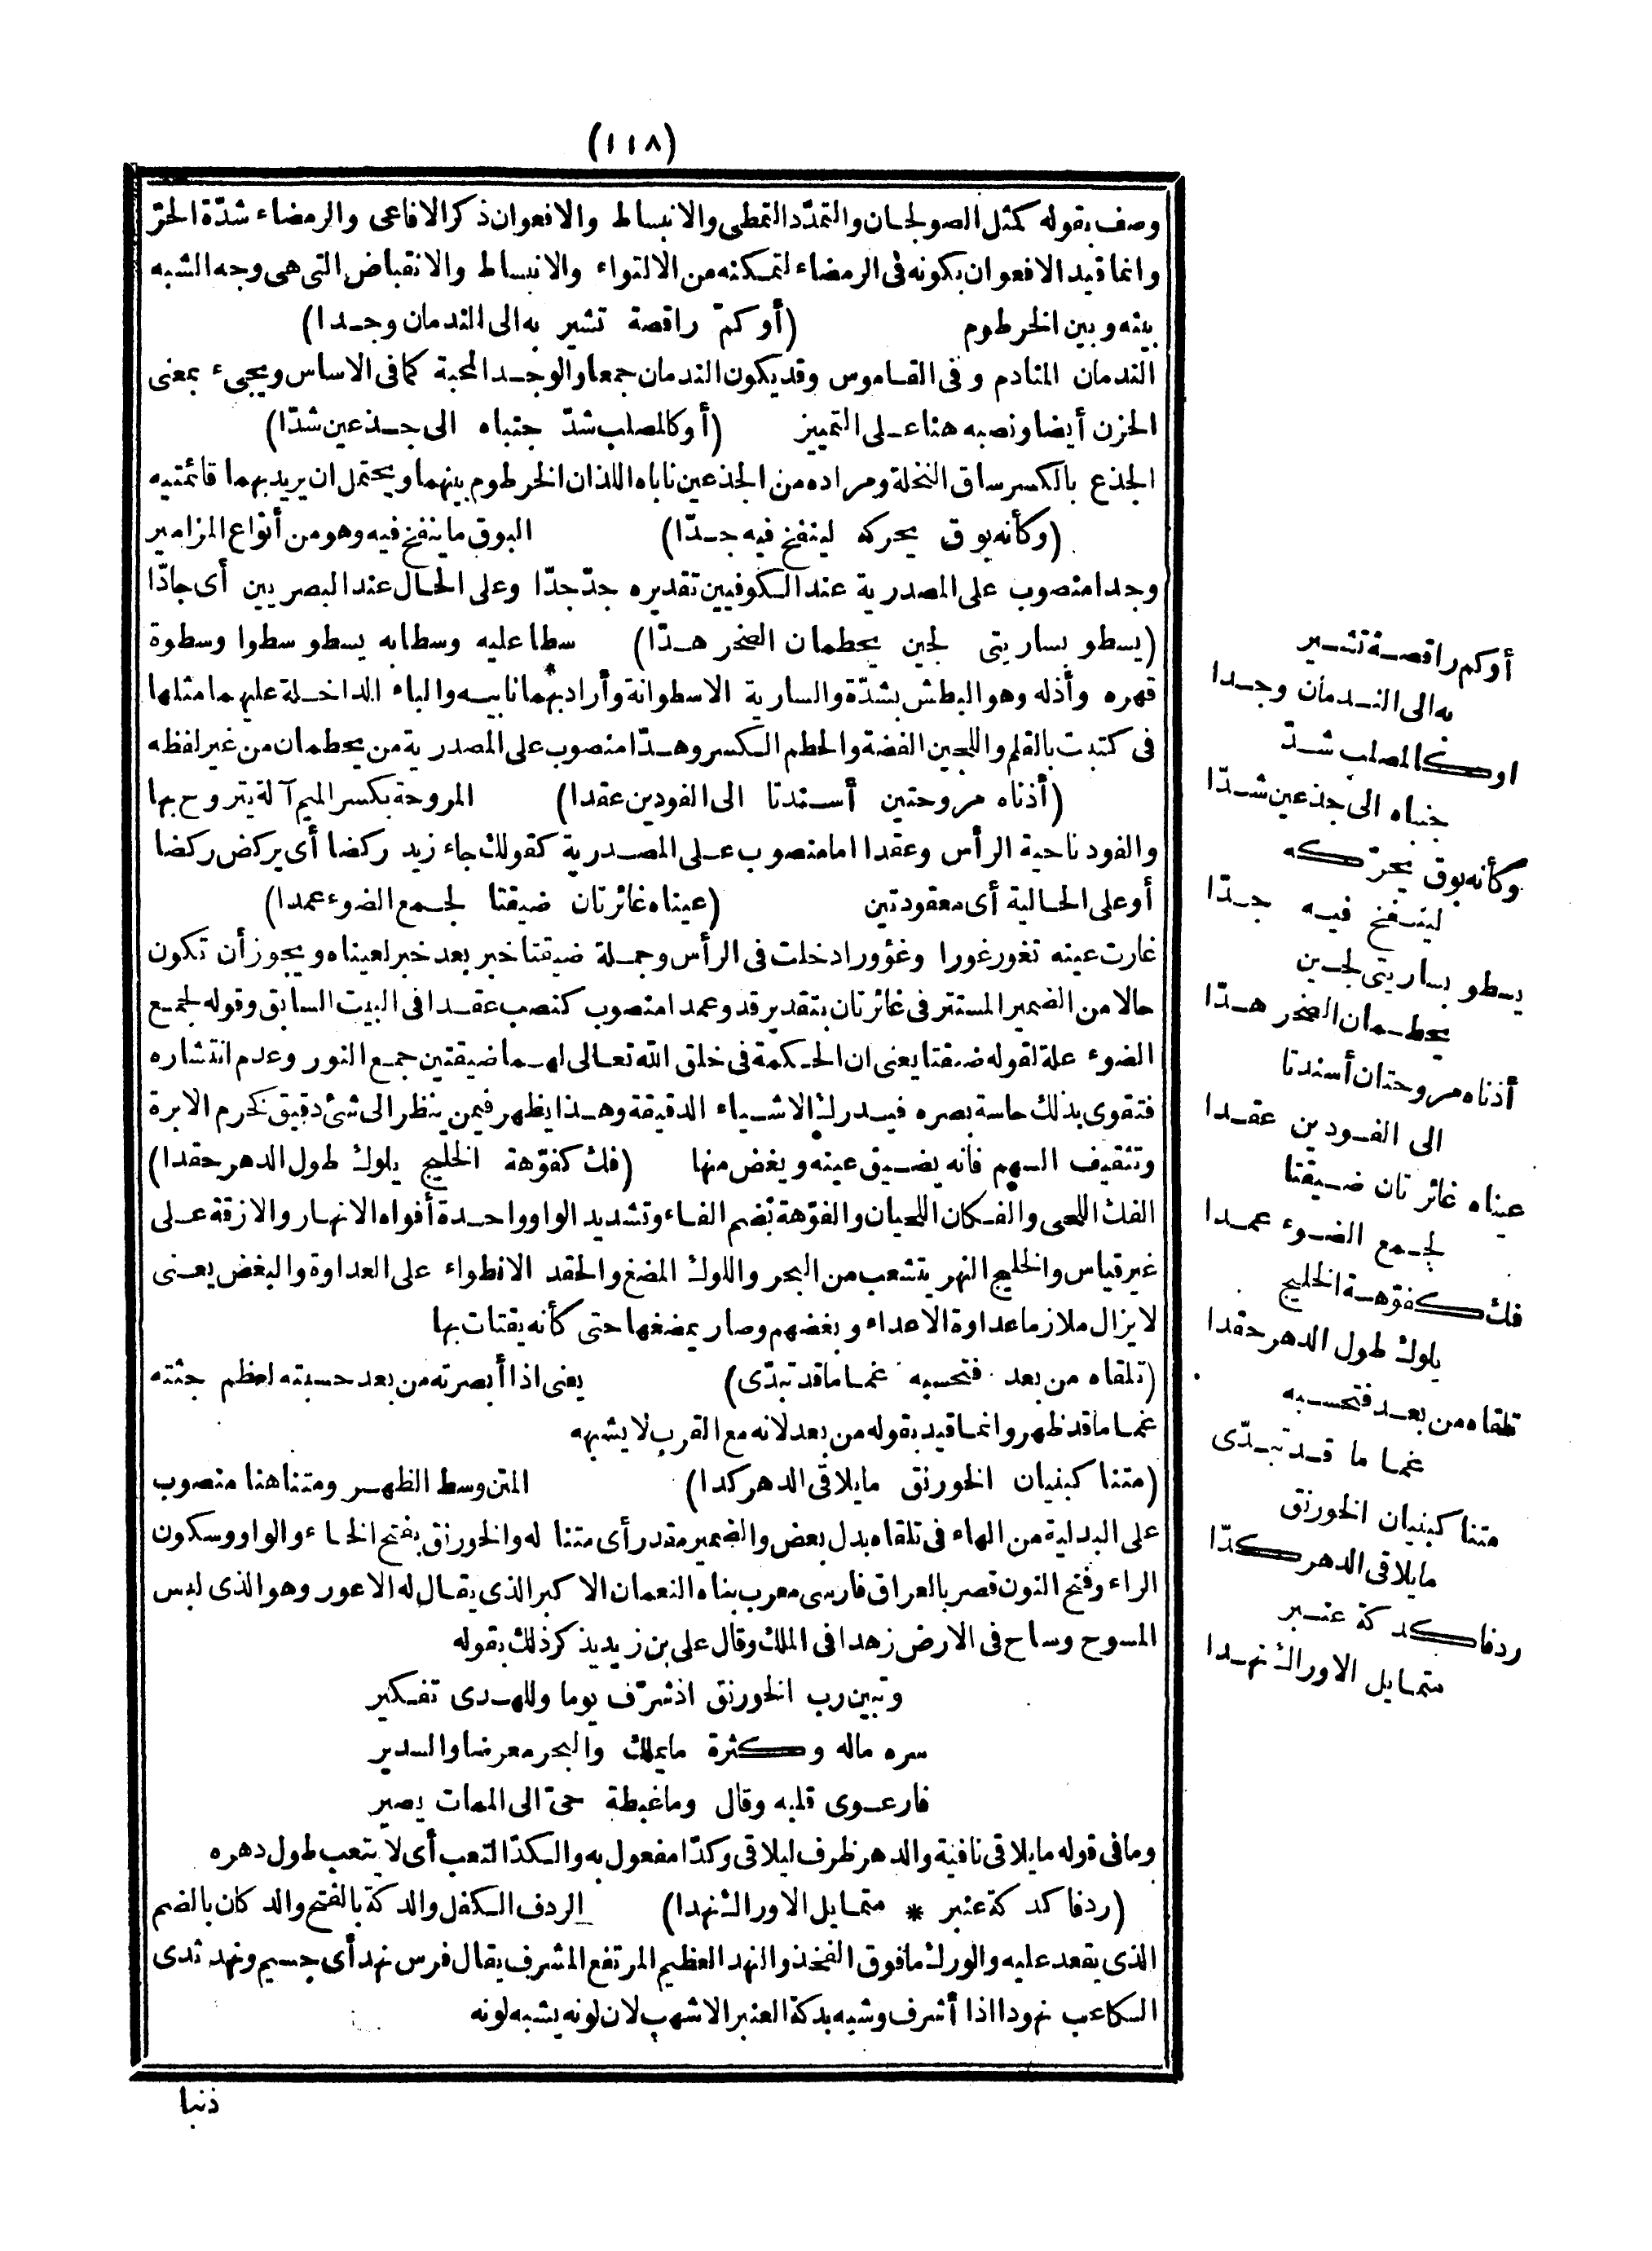 (١١٨)
وصف بقوله كمثل الصولجان والتمدّد التمطى والانبساط والافعوان ذكر الافاعى والرمضاء شدّة الحرّ
وانما قيد الافعوان بكونه فى الرمضاء لتمكنه من الالتواء والانبساط والانقباض التى هى وجه الشبه
بينه وبين الخرطوم (أو كمّ راقصة تشير به الى الندمان وجدا)
الندمان المنادم وفى القاموس وقد يكون الندمان جمعا والوجد المحبة كما فى الاساس ويجىء بمعنى
الحزن أيضا ونصبه هنا على التمييز (أو كالمصلب شدّ جنباه الى جذعين شدّا)
الجذع بالكسر ساق النخلة ومراده من الجذعين ناباه اللذان الخرطوم بينهما ويحتمل ان يريد بهما قائمتيه
(وكأنه بوق يحركه لينفخ فيه جدّا) البوق ما ينفخ فيه وهو من أنواع المزامير
وجدا منصوب على المصدرية عند الكوفيين تقديره جدّ جدّا وعلى الحال عند البصريين أى جادّا
(يسطو بساريتى لجين يحطمان الصخر هدّا) سطا عليه وسطابه يسطو سطوا وسطوة
قهره وأذله وهو البطش بشدّة والسارية الاسطوانة وأراد بهما نابيه والباء الداخلة عليهما مثلها
فى كتبت بالقلم واللجين الفضة والحطم الكسر وهدّا منصوب على المصدرية من يحطمان من غير لفظه
(أذناه مروحتين أسندتا الى الفودين عقدا) المروحة بكسر الميم آلة يتروح بها
والفود ناحية الرأس وعقدا اما منصوب على المصدرية كقولك جاء زيد ركضا أى يركض ركضا
أو على الحالية أى معقودتين (عيناه غائرتان ضيقتا لجمع الضوء عمدا)
غارت عينه تغور غورا وغؤورا دخلت فى الرأس وجملة ضيقتا خبر بعد خبر لعيناه ويجوز أن تكون
حالا من الضمير المستتر فى غائرتان بتقدير قد وعمدا منصوب كنصب عقدا فى البيت السابق وقوله لجمع
الضوء علة لقوله ضيقتا يعنى ان الحكمة فى خلق الله تعالى لهما ضيقتين جمع النور وعدم انتشاره
فتقوى بذلك حاسة بصره فيدرك الاشياء الدقيقة وهذا يظهر فيمن ينظر الى شئ دقيق كخرم الابرة
وتثقيف السهم فانه يضيق عينه ويغض منها (فك كفوّهة الخليج يلوك طول الدهر حقدا)
الفك اللحى والفكان اللحيان والفوّهة بضم الفاء وتشديد الواو واحدة أفواه الانهار والازقة على
غير قياس والخليج النهر يتشعب من البحر واللوك المضغ والحقد الانطواء على العداوة والبغض يعنى
لا يزال ملازما عداوة الاعداء وبغضهم وصار يمضغها حتى كأنه يقتات بها
(تلقاه من بعد فتحسبه غماما قد تبدّى) يعنى اذا أبصرته من بعد حسبته لعظم جثته
غماما قد ظهر وانما قيد بقوله من بعد لانه مع القرب لا يشبهه
(متنا كبنيان الخورنق ما يلاقى الدهر كدا) المتن وسط الظهر ومتنا هنا منصوب
على البدلية من الهاء فى تلقاه بدل بعض والضمير مقدر أى متنا له والخورنق بفتح الخاء والواو وسكون
الراء وفتح النون قصر بالعراق فارسى معرب بناه النعمان الاكبر الذى يقال له الاعور وهو الذى لبس
المسوح وساح فى الارض زهدا فى الملك وقال على بن زيد يذكر ذلك بقوله
وتبين رب الخورنق اذ شرّف يوما وللهدى تفكير
سره ماله وكثرة ما يملك والبحر معرضا والسدير
فارعوى قلبه وقال وما غبطة حىّ الى الممات يصير
وما فى قوله ما يلاقى نافية والدهر ظرف ليلاقى وكدّا مفعول به والكدّ التعب أى لا يتعب طول دهره
(ردفا كدكة عنبر * متمايل الاوراك نهدا) الردف الكفل والدكة بالفتح والدكان بالضم
الذى يقعد عليه والورك ما فوق الفخذ والنهد العظيم المرتفع المشرف يقال فرس نهد أى جسيم ونهد ثدى
الكاعب نهودا اذا أشرف وشبه بدكة العنبر الاشهب لان لونه يشبه لونه
ذنبا
أو كم راقصة تشير
به الى الندمان وجدا
او كالمصلب شدّ
جنباه الى جذعين شدّا
وكأنه بوق يحرّكه
لينفخ فيه جدّا
يسطو بساريتى لجين
يحطمان الصخر هدّا
أذناه مروحتان أسندتا
الى الفودين عقدا
عيناه غائرتان ضيقتا
لجمع الضوء عمدا
فك كفوّهة الخليج
يلوك طول الدهر حقدا
تلقاه من بعد فتحسبه
غماما قد تبدّى
متنا كبنيان الخورنق
ما يلاقى الدهر كدّا
ردفا كدكة عنبر
متمايل الاوراك نهدا